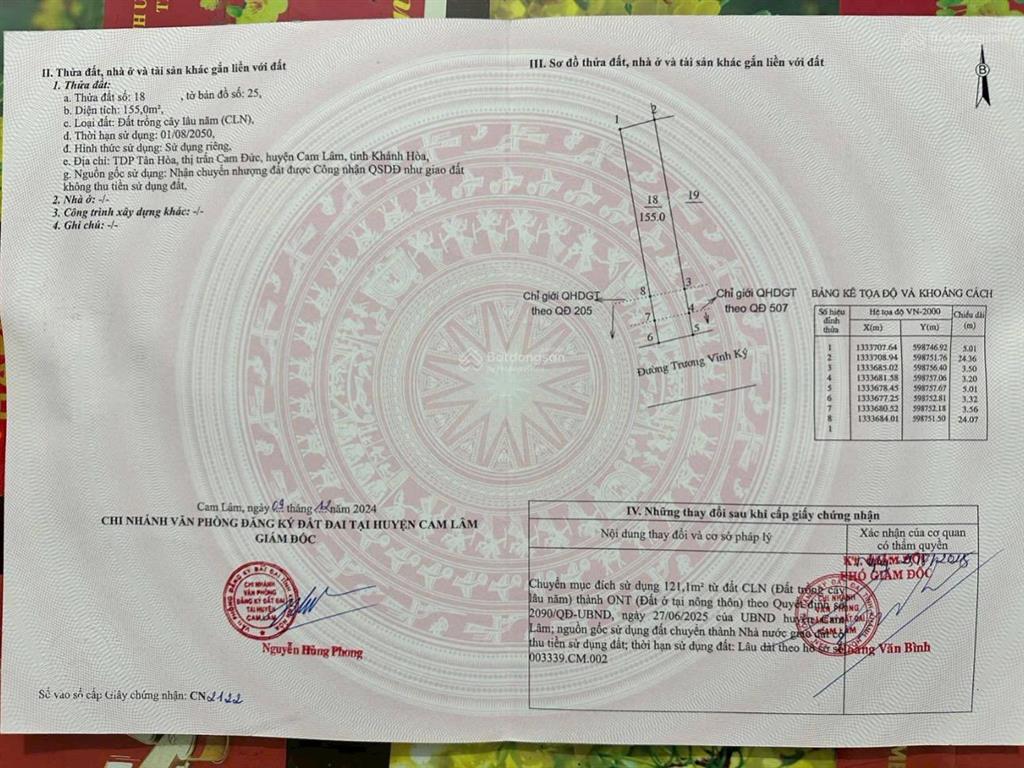 II. Thửa đất, nhà ở và tài sản khác gắn liền với đất
1. Thửa đất:
a. Thửa đất số: 18 , tờ bản đồ số: 25,
b. Diện tích: 155,0m²,
c. Loại đất: Đất trồng cây lâu năm (CLN),
d. Thời hạn sử dụng: 01/08/2050,
đ. Hình thức sử dụng: Sử dụng riêng,
e. Địa chỉ: TDP Tân Hòa, thị trấn Cam Đức, huyện Cam Lâm, tỉnh Khánh Hòa,
g. Nguồn gốc sử dụng: Nhận chuyển nhượng đất được Công nhận QSDĐ như giao đất
không thu tiền sử dụng đất,
2. Nhà ở: -/-
3. Công trình xây dựng khác: -/-
4. Ghi chú: -/-
Cam Lâm, ngày 09 tháng 12 năm 2024
CHI NHÁNH VĂN PHÒNG ĐĂNG KÝ ĐẤT ĐAI TẠI HUYỆN CAM LÂM
GIÁM ĐỐC
CHI NHÁNH
VĂN PHÒNG
ĐĂNG KÝ ĐẤT ĐAI
TẠI HUYỆN
CAM LÂM
Nguyễn Hùng Phong
Số vào sổ cấp Giấy chứng nhận: CN 2122
III. Sơ đồ thửa đất, nhà ở và tài sản khác gắn liền với đất
B
1
2
18
155.0
19
8
3
7
4
6
5
Chỉ giới QHDGT
theo QĐ 205
Chỉ giới QHDGT
theo QĐ 507
Đường Trương Vĩnh Ký
Batdongsan
BẢNG KÊ TỌA ĐỘ VÀ KHOẢNG CÁCH
Số hiệu đỉnh thửa Hệ tọa độ VN-2000 Chiều dài (m)
X(m) Y(m)
1 1333707.64 598746.92 5.01
2 1333708.94 598751.76 24.36
3 1333685.02 598756.40 3.50
4 1333681.58 598757.06 3.20
5 1333678.45 598757.67 5.01
6 1333677.25 598752.81 3.32
7 1333680.52 598752.18 3.56
8 1333684.01 598751.50 24.07
1
IV. Những thay đổi sau khi cấp giấy chứng nhận
Nội dung thay đổi và cơ sở pháp lý
Xác nhận của cơ quan
có thẩm quyền
PHÓ GIÁM ĐỐC
Chuyển mục đích sử dụng 121,1m² từ đất CLN (Đất trồng cây
lâu năm) thành ONT (Đất ở tại nông thôn) theo Quyết định số
2090/QĐ-UBND, ngày 27/06/2025 của UBND huyện Cam
Lâm; nguồn gốc sử dụng đất chuyển thành Nhà nước giao đất có
thu tiền sử dụng đất; thời hạn sử dụng đất: Lâu dài theo hồ sơ số
003339.CM.002
Văn Bình